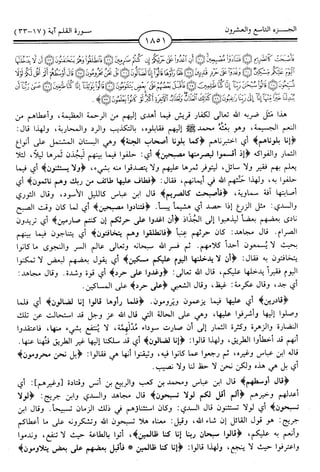 الجزء التاسع والعشرون
١٨٥١
سورة القلم آية (١٧-٣٣)
هذا مثل ضربه الله تعالى لكفار قريش فيما أهدى إليهم من الرحمة العظيمة، وأعطاهم من
النعم الجسيمة، وهو بعثة محمد ﷺ إليهم فقابلوه بالتكذيب والرد والمحاربة، ولهذا قال:
﴿إنا بلوناهم﴾ أي اختبرناهم ﴿كما بلونا أصحاب الجنة﴾ وهي البستان المشتمل على أنواع
الثمار والفواكه ﴿إذ أقسموا ليصرمنها مصبحين﴾ أي: حلفوا فيما بينهم ليجذن ثمرها ليلاً، لئلا
يعلم بهم فقير ولا سائل، ليتوفر ثمرها عليهم ولا يتصدقوا منه بشيء، ﴿ولا يستثنون﴾ أي فيما
حلفوا به، ولهذا حنثهم الله في أيمانهم، فقال: ﴿فطاف عليها طائف من ربك وهم نائمون﴾ أي
أصابتها آفة سماوية، ﴿فأصبحت كالصريم﴾ قال ابن عباس كالليل الأسود، وقال الثوري
والسدي: مثل الزرع إذا حصد أي هشيماً يبساً. ﴿فتنادوا مصبحين﴾ أي لما كان وقت الصبح
نادى بعضهم بعضاً ليذهبوا إلى الجذاذ ﴿أن اغدوا على حرثكم إن كنتم صارمين﴾ أي تريدون
الصرام. قال مجاهد: كان حرثهم عنباً ﴿فانطلقوا وهم يتخافتون﴾ أي يتناجون فيما بينهم
بحيث لا يسمعون أحداً كلامهم. ثم فسر الله سبحانه وتعالى عالم السر والنجوى ما كانوا
يتخافتون به فقال: ﴿أن لا يدخلنها اليوم عليكم مسكين﴾ أي يقول بعضهم لبعض لا تمكنوا
اليوم فقيراً يدخلها عليكم، قال الله تعالى: ﴿وغدوا على حرد﴾ أي قوة وشدة. وقال مجاهد:
أي جد، وقال عكرمة: غيظ، وقال الشعبي ﴿على حرد﴾ على المساكين.
﴿قادرين﴾ أي عليها فيما يزعمون ويرومون. ﴿فلما رأوها قالوا إنا لضالون﴾ أي فلما
وصلوا إليها وأشرفوا عليها، وهي على الحالة التي قال الله عز وجل قد استحالت عن تلك
النضارة والزهرة وكثرة الثمار إلى أن صارت سوداء مدلهمة، لا ينتفع بشيء منها، فاعتقدوا
أنهم قد أخطأوا الطريق، ولهذا قالوا: ﴿إنا لضالون﴾ أي قد سلكنا إليها غير الطريق فتهنا عنها.
قاله ابن عباس وغيره، ثم رجعوا عما كانوا فيه، وتيقنوا أنها هي فقالوا: ﴿بل نحن محرومون﴾
أي بل هي هذه ولكن نحن لا حظ لنا ولا نصيب.
﴿قال أوسطهم﴾ قال ابن عباس ومحمد بن كعب والربيع بن أنس وقتادة [وغيرهم]: أي
أعدلهم وخيرهم ﴿ألم أقل لكم لولا تسبحون﴾ قال مجاهد والسدي وابن جريج: ﴿لولا
تسبحون﴾ أي لولا تستثنون قال السدي: وكان استثناؤهم في ذلك الزمان تسبيحاً. وقال ابن
جريج: هو قول القائل إن شاء الله، وقيل: معناه هلا تسبحون الله وتشكرونه على ما أعطاكم
وأنعم به عليكم، ﴿قالوا سبحان ربنا إنا كنا ظالمين﴾ أتوا بالطاعة حيث لا تنفع، وندموا
واعترفوا حيث لا ينجع، ولهذا قالوا: ﴿إنا كنا ظالمين * فأقبل بعضهم على بعض يتلاومون﴾